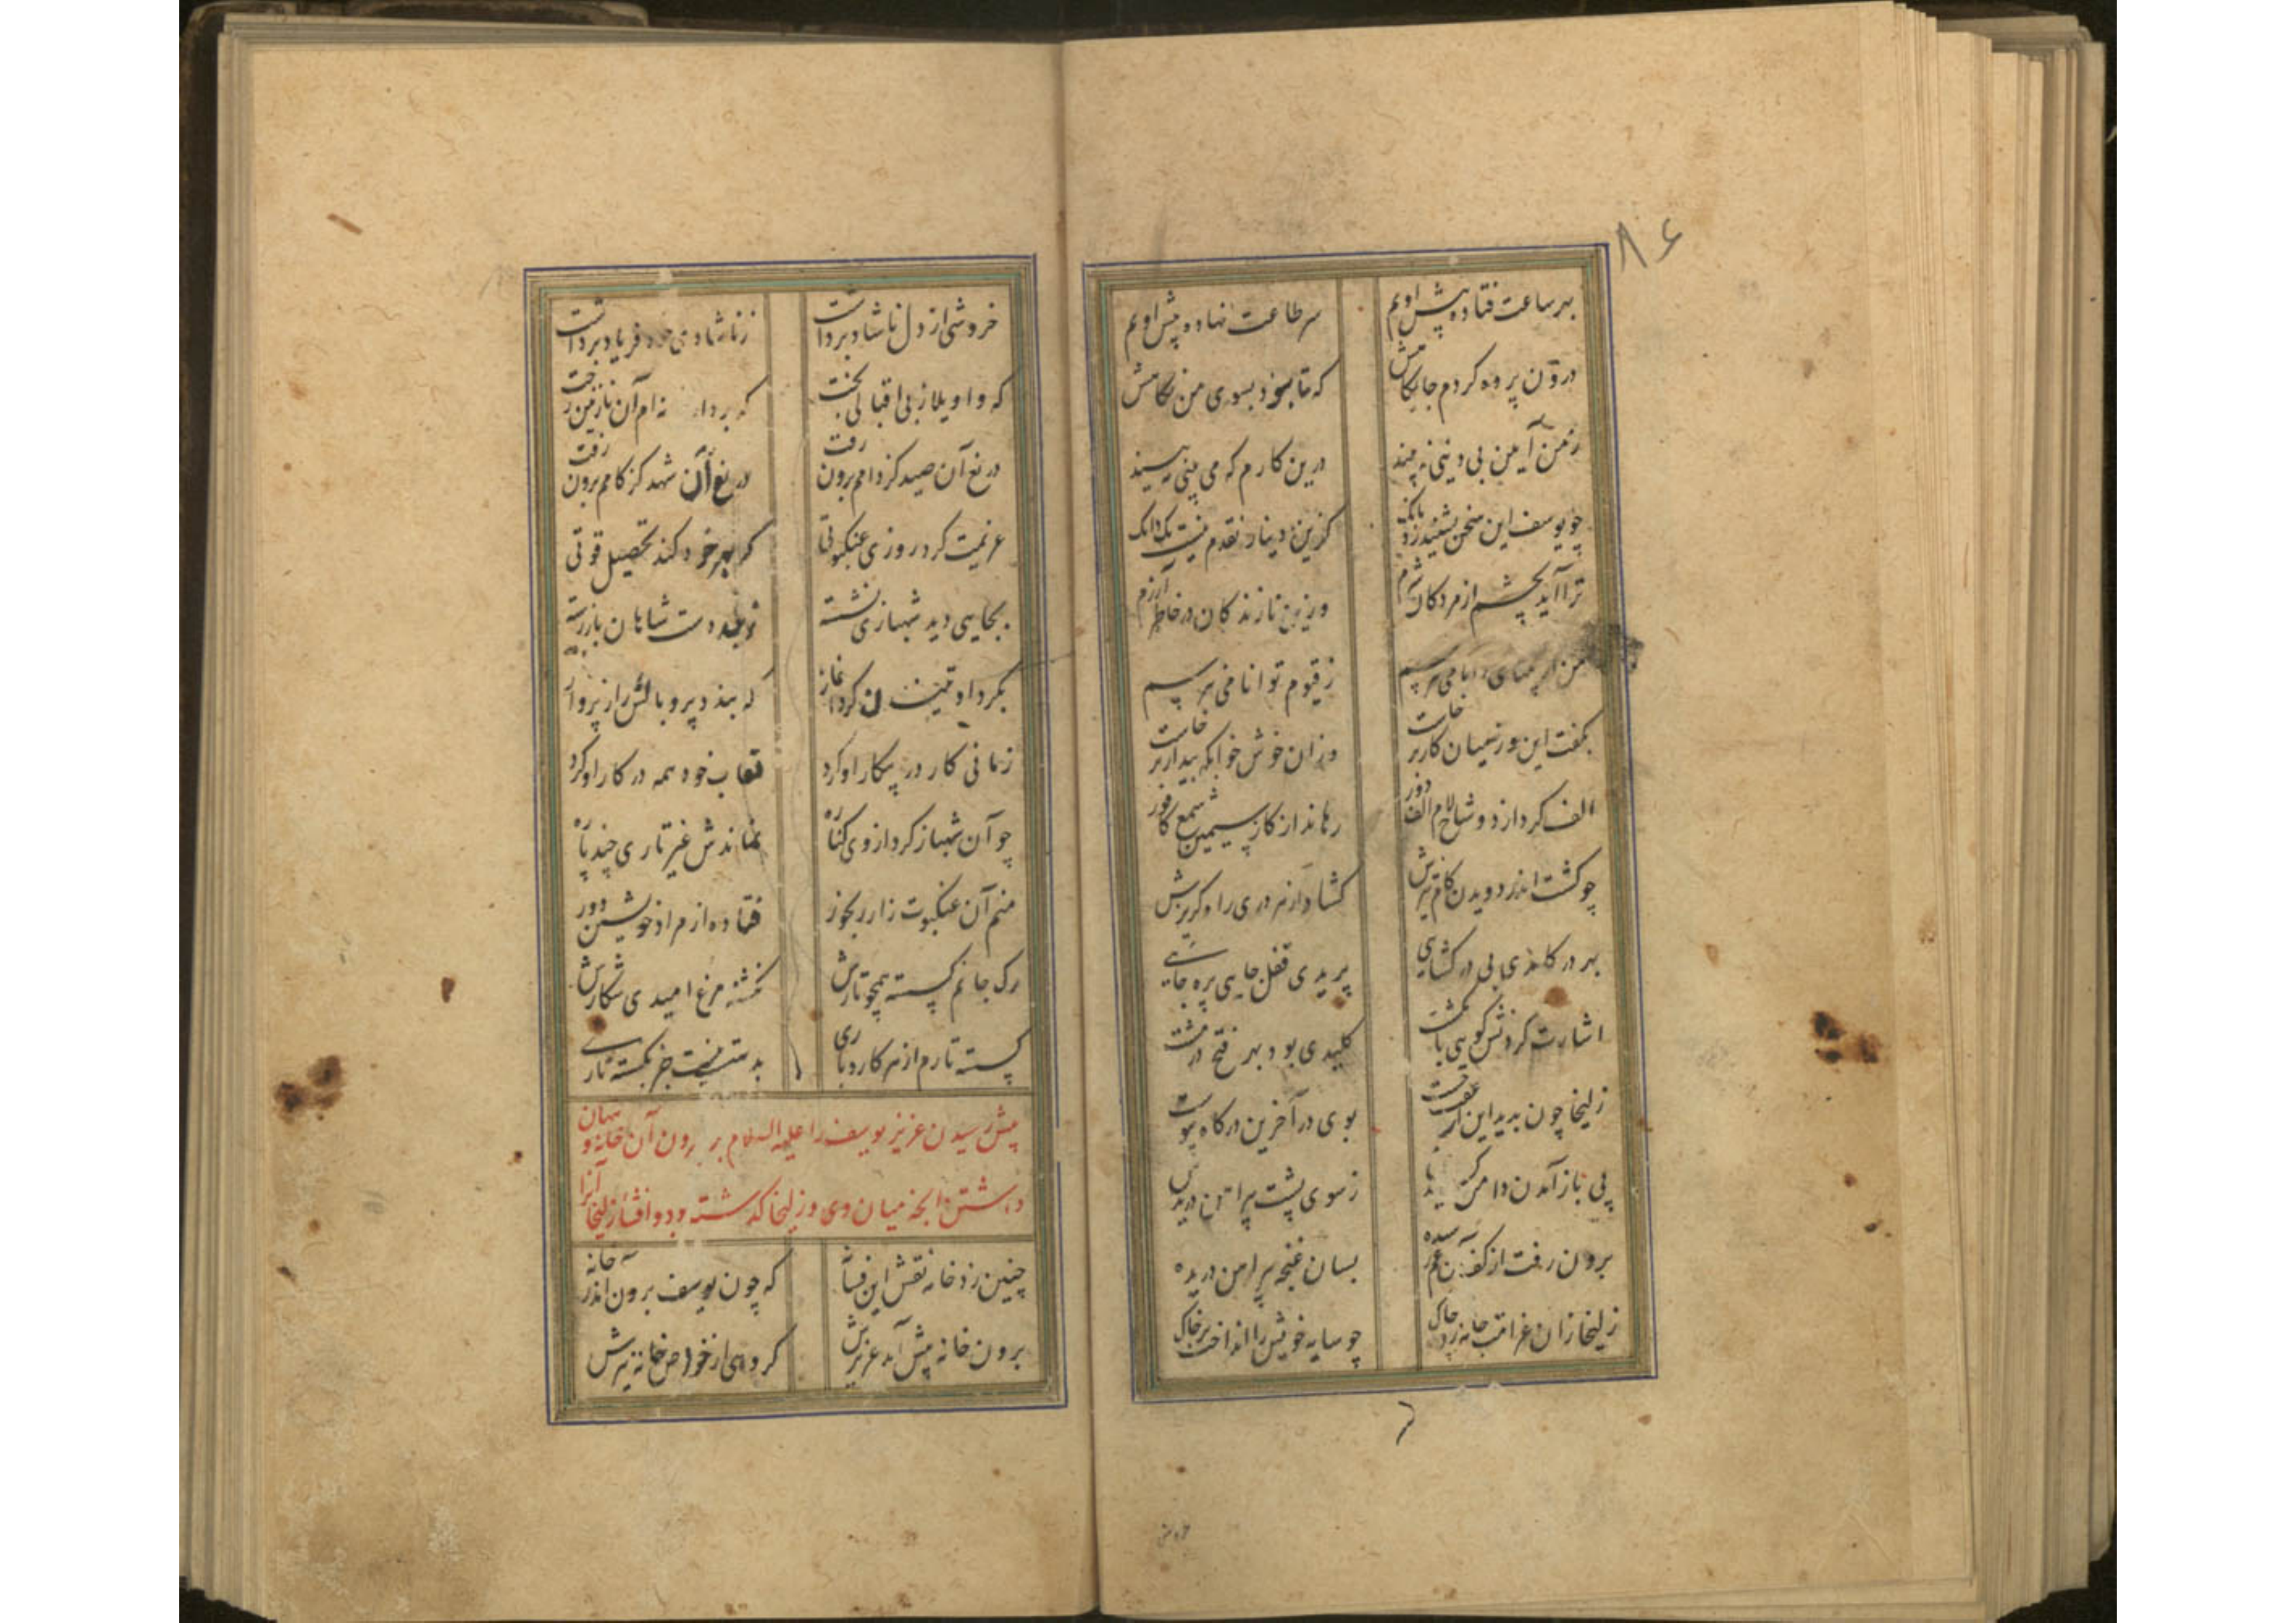 ۸۶
بهر ساعت فتاده پیش اویم
سر طاعت نهاده پیش اویم
درون پرده کردم جایگاهش
که تا نبود بسوی من نگاهش
ز من آیین بی دینی نه بیند
درین کارم که می بینی نه بیند
چو یوسف این سخن بشنید زد بانک
کزین دینار نقدم نیست یک دانک
ترا آید بچشم از مردکان شرم
وزین نازندکان در خاطر آزرم
من از بینای دانا می نترسم
ز قیوم توانا می نترسم
بگفت این وز میان کار برخاست
وزان خوش خوابکه بیدار برخاست
الف کرد از دو شاخ لام الف دور
رهاند از کاز سیمین شمع کافور
چو کشت اندر دویدن کام تیزش
کشاد از هر دری راه کریزش
بهر در کامدی بی در کشایی
پریدی قفل جایی پره جایی
اشارت کردنش کویی بانکشت
کلیدی بود بهر فتح در مشت
زلیخا چون بدید این از عقب جست
بوی در آخرین درگاه پیوست
پی باز آمدن دامن کشیدش
ز سوی پشت پیراهن دریدش
برون رفت از کف آن غم رسیده
بسان غنچه پیراهن دریده
زلیخا زان غرامت جامه زد چاک
چو سایه خویش را انداخت بر خاک
خروشی از دل ناشاد برداشت
ز ناشادی خود فریاد برداشت
که واویلا ز بی اقبالی بخت
که برد از خانه ام آن نازنین رخت
دریغ آن صید کز دامم برون رفت
دریغ آن شهد کز کامم برون رفت
عزیمت کرد روزی عنکبوتی
که بهر خود کند تحصیل قوتی
بجایی دید شهبازی نشسته
ز قید دست شاهان باز رسته
بگرد او تنیدن کرد آغاز
که بندد پر و بالش را ز پرواز
زمانی کار در پیکار او کرد
لعاب خود همه در کار او کرد
چو آن شهباز کرد از وی کناره
نماندش غیر تاری چند پاره
منم آن عنکبوت زار رنجور
فتاده از مراد خویشتن دور
رک جانم کسسته همچو تارش
نکشته مرغ امیدی شکارش
کسسته تارم از هر کار و باری
بدستم نیست جز بکسسته تاری
پیش رسیدن عزیز یوسف را علیه السلام بر برون آن خانه و نهان
داشتن آنچه میان وی و زلیخا کذشته بود و افشای زلیخا آنرا
چنین زد خامه نقش این فسانه
که چون یوسف برون آمد ز خانه
برون خانه پیش آمد عزیزش
کروهی از خواص خانه نیزش